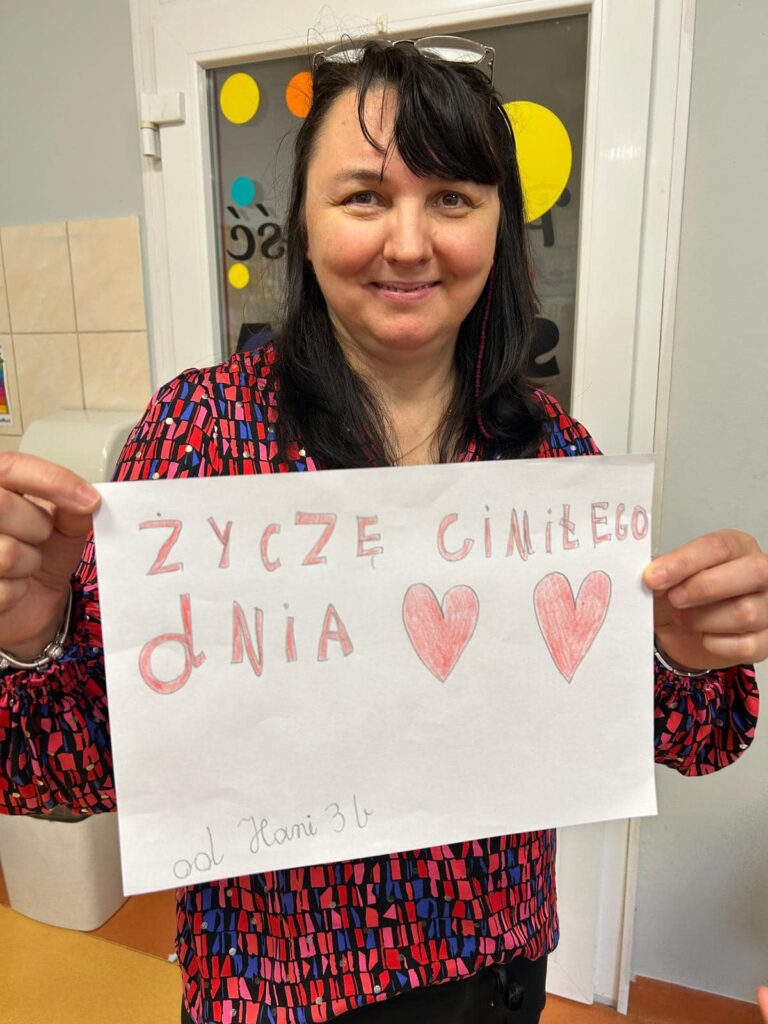 ŻYCZĘ CIMIŁEGO
dNiA
od Hani 3b